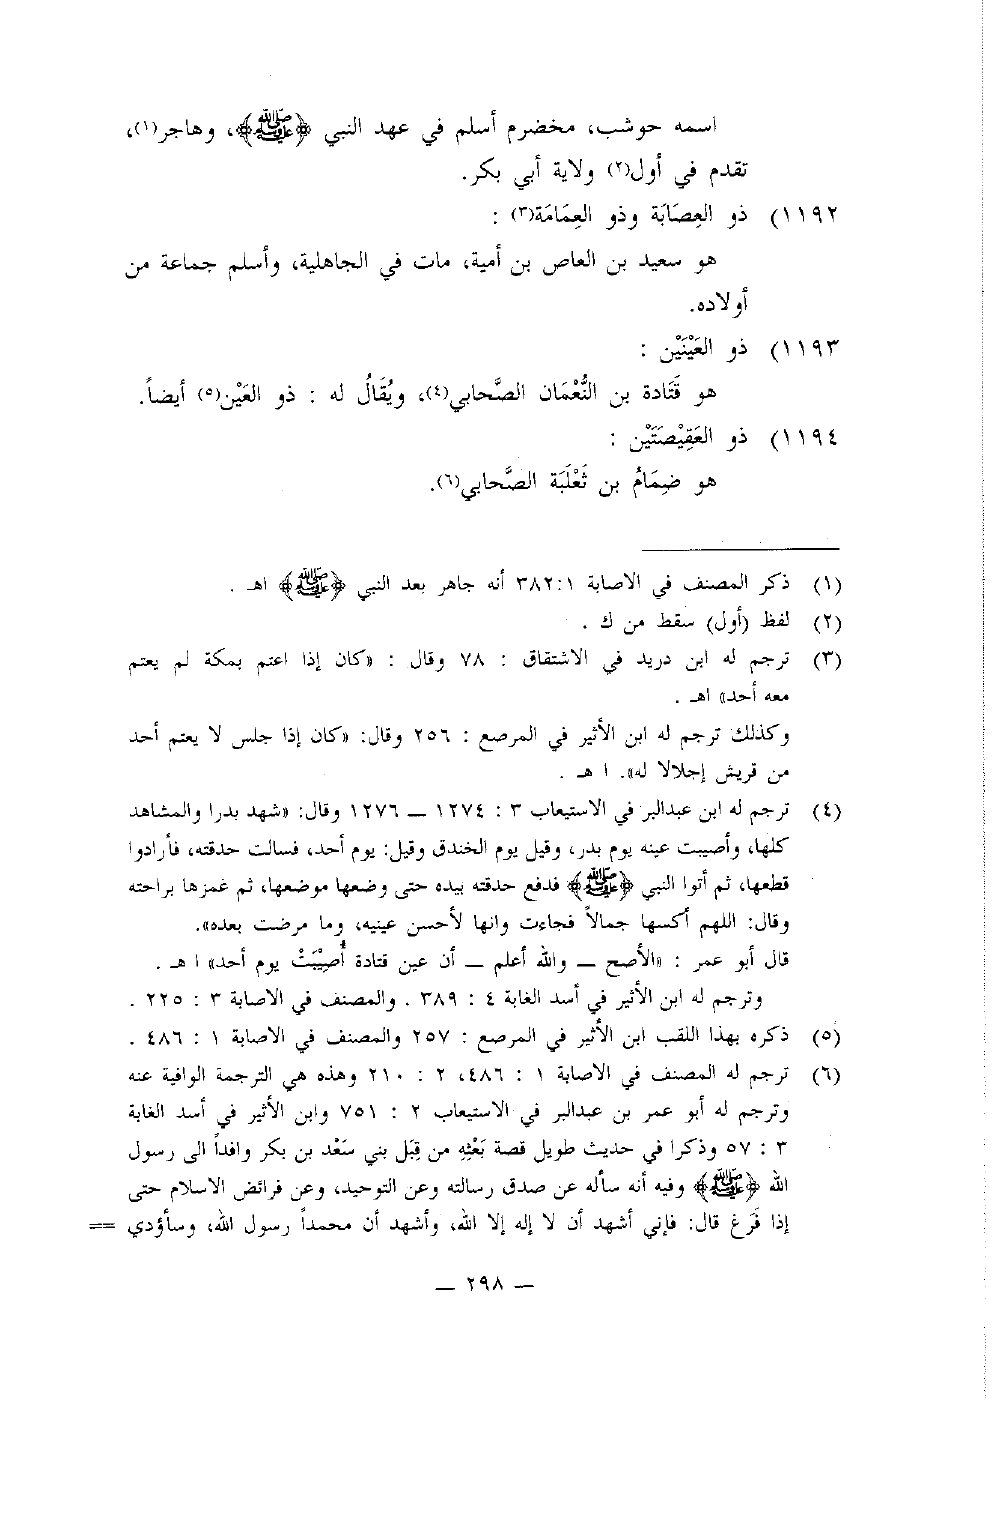 اسمه حوشب، مخضرم أسلم في عهد النبي ﴿ﷺ﴾، وهاجر(١)،
تقدم في أول(٢) ولاية أبي بكر.
١١٩٢) ذو العِصَابَة وذو العِمَامَة(٣) :
هو سعيد بن العاص بن أمية، مات في الجاهلية، وأسلم جماعة من
أولاده.
١١٩٣) ذو العَيْنَيْن :
هو قَتَادة بن النُّعْمَان الصَّحابي(٤)، ويُقَالُ له : ذو العَيْن(٥) أيضاً.
١١٩٤) ذو العَقِيْصَتَيْن :
هو ضِمَامُ بن ثَعْلَبَة الصَّحابي(٦).
(١) ذكر المصنف في الاصابة ٣٨٢:١ أنه جاهر بعد النبي ﴿ﷺ﴾ اهـ .
(٢) لفظ (أول) سقط من ك .
(٣) ترجم له ابن دريد في الاشتقاق : ٧٨ وقال : «كان إذا اعتم بمكة لم يعتم
معه أحد» اهـ .
وكذلك ترجم له ابن الأثير في المرصع : ٢٥٦ وقال: «كان إذا جلس لا يعتم أحد
من قريش إجلالا له». ا هـ .
(٤) ترجم له ابن عبدالبر في الاستيعاب ٣ : ١٢٧٤ ــ ١٢٧٦ وقال: «شهد بدرا والمشاهد
كلها، وأصيبت عينه يوم بدر، وقيل يوم الخندق وقيل: يوم أحد، فسالت حدقته، فأرادوا
قطعها، ثم أتوا النبي ﴿ﷺ﴾ فدفع حدقته بيده حتى وضعها موضعها، ثم غمزها براحته
وقال: اللهم أكسها جمالاً فجاءت وانها لأحسن عينيه، وما مرضت بعده».
قال أبو عمر : «الأصح ــ والله أعلم ــ أن عين قتادة أُصِيْبَتْ يوم أحد» ا هـ .
وترجم له ابن الأثير في أسد الغابة ٤ : ٣٨٩ . والمصنف في الاصابة ٣ : ٢٢٥ .
(٥) ذكره بهذا اللقب ابن الأثير في المرصع : ٢٥٧ والمصنف في الاصابة ١ : ٤٨٦ .
(٦) ترجم له المصنف في الاصابة ١ : ٤٨٦، ٢ : ٢١٠ وهذه هي الترجمة الوافية عنه
وترجم له أبو عمر بن عبدالبر في الاستيعاب ٢ : ٧٥١ وابن الأثير في أسد الغابة
٣ : ٥٧ وذكرا في حديث طويل قصة بَعْثِهِ من قِبَل بني سَعْد بن بكر وافداً الى رسول
الله ﴿ﷺ﴾ وفيه أنه سأله عن صدق رسالته وعن التوحيد، وعن فرائض الاسلام حتى
إذا فَرَغ قال: فإني أشهد أن لا إله إلا الله، وأشهد أن محمداً رسول الله، وسأؤدي ==
ــ ٢٩٨ ــ